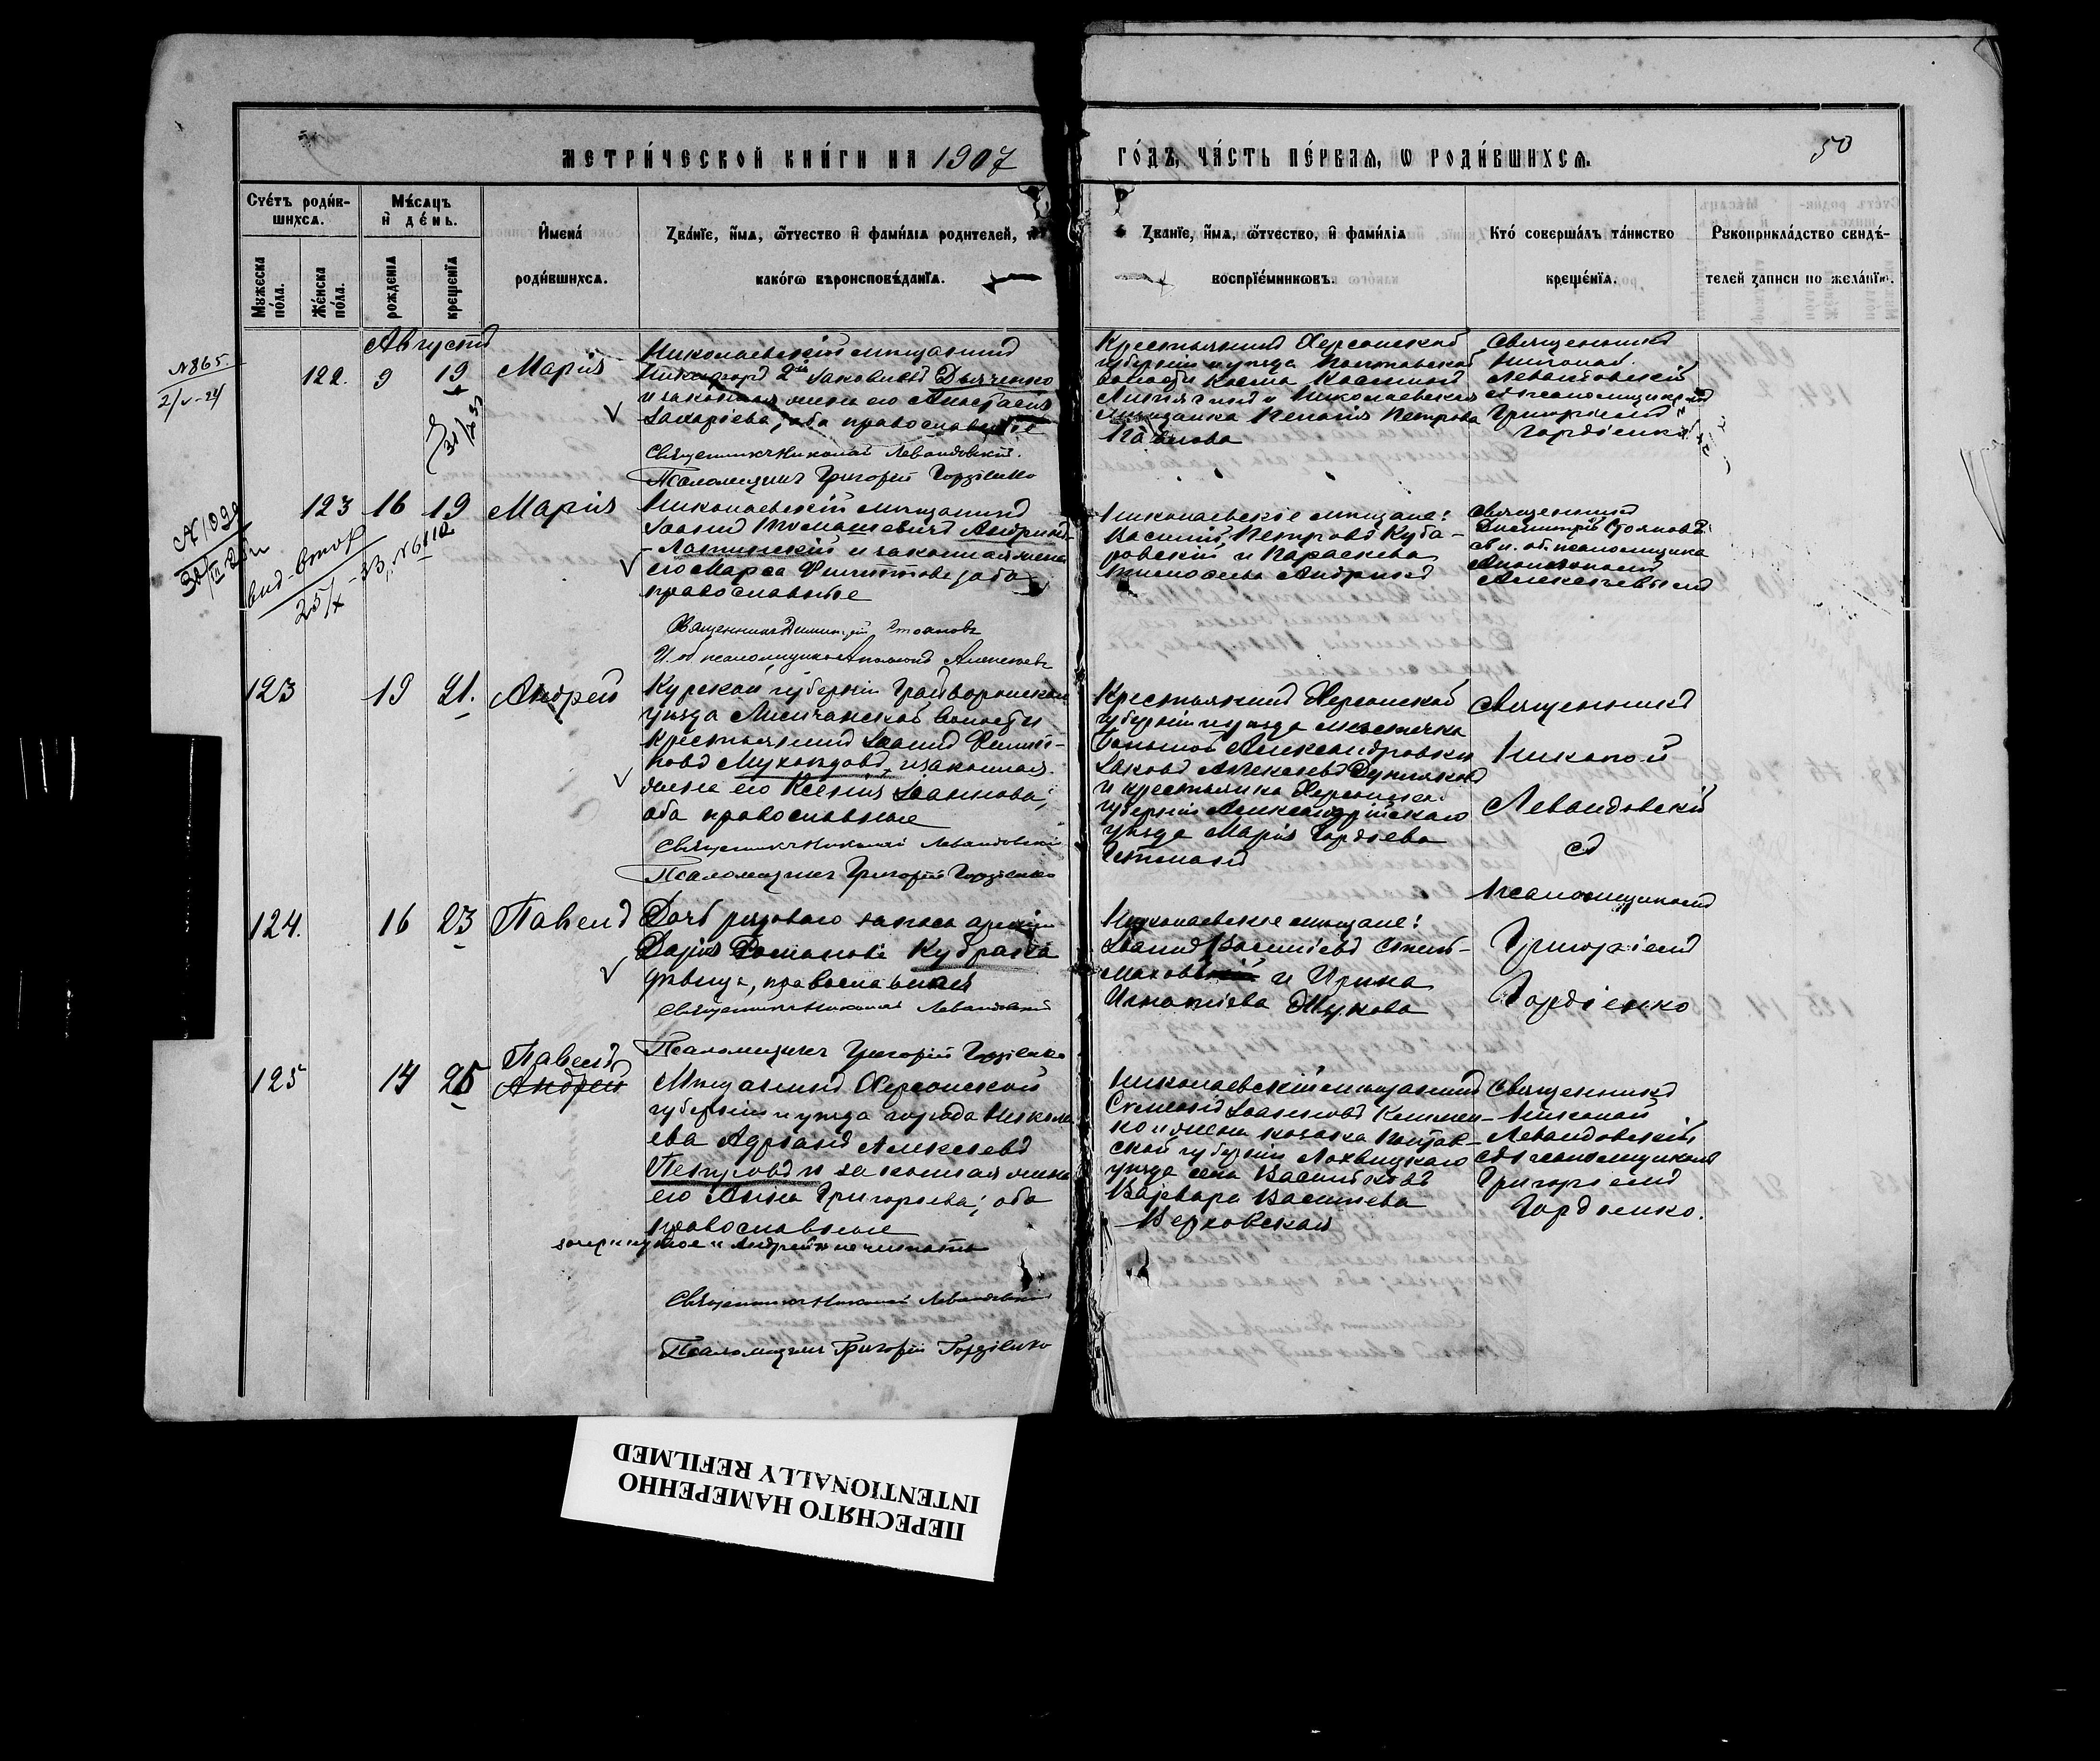 МЕТРИ́ЧЕСКОЙ КНИ́ГИ НА 1907
ГО́ДЪ, ЧА́СТЬ ПЕ́РВАЯ, Ѡ РОДИ́ВШИХСЯ.
50
Счétъ роди́в-
шихся.
Мѣ́сяцъ
и҆ де́нь.
Мꙋжеска по́ла.
Же́нска по́ла.
рожденїѧ
крещенїѧ
И҆мена́
роди́вшихся.
Зва́нїе, и҆́мѧ, ѻ҆́тчество и҆ фами́лїѧ родителей, и҆
како́гѡ вѣроисповѣ́данїѧ.
Зва́нїе, и҆́мѧ, ѻ҆́тчество, и҆ фами́лїѧ
воспрїе́мниковъ.
Кто́ соверша́лъ та́инство
креще́нїѧ.
Рꙋкоприкла́дство свидѣ́-
телей записи по жела́нїю.
Августъ
№865.
2/V-24
122. 9 19 Марія
Николаевскій мѣщанинъ
Никифоръ 2й Іаковлевъ Дьяченко
и законная жена его Анастасія
Захаріева, оба православные
Священникъ Николай Левандовскій.
Псаломщикъ Григорій Гордіенко
Крестьянинъ Херсонской
губерніи и уѣзда
волости Косма Косминъ
и Николаевская
мѣщанка Пелагія Петрова
Священникъ
Николай
Левандовскій
съ псаломщикомъ
Григоріемъ
Гордіенко
123 16 19 Марія
Николаевскій мѣщанинъ
Іоаннъ Томашевичъ Андрик-
-Латинскій и законная жена
его Марѳа Филиппова, оба
православные
Священникъ Димитрій Стояновъ
И. об. псаломщика Алексѣевъ
Николаевскіе мѣщане:
Василій Петровъ Куба-
ровскій и Параскева
Тимоѳеева
Священникъ
Димитрій Стояновъ
съ и. об. псаломщика
Алексѣевымъ
123 19 21. Андрей
Курской губерніи Грайворонскаго
уѣзда Лисичанской волости
крестьянинъ Іоаннъ Филип-
повъ и законная
жена его Ксенія Іоаннова,
оба православные
Священникъ Николай Левандовскій
Псаломщикъ Григорій Гордіенко
Крестьянинъ Херсонской
губерніи и уѣзда мѣстечка
Большой Александровки
Іаковъ Алексѣевъ
и крестьянка Херсонской
губерніи Александрійскаго
уѣзда Марія Гордѣева
Гетманъ
Священникъ
Николай
Левандовскій
съ
псаломщикомъ
Григоріемъ
Гордіенко
124. 16 23 Павелъ
Дочь рядового запаса арміи
Дарія Романова Кудрява
дѣвица, православная
Священникъ Николай Левандовскій
Псаломщикъ Григорій Гордіенко
Николаевскіе мѣщане:
Іоаннъ Василіевъ Стель-
маховъ и Ирина
Игнатіева Жукова
Павелъ
125 14 25 Андрей
Мѣщанинъ Херсонской
губерніи и уѣзда города Никола
ева Адріанъ Алексѣевъ
Петровъ и законная жена
его Анна Григорьева, оба
православные
зачеркнутое "Андрей" не читать
Священникъ Николай Левандовскій
Псаломщикъ Григорій Гордіенко
Николаевскій мѣщанинъ
Стефанъ Іоанновъ
ко и жена козака Полтав-
ской губерніи Лохвицкаго
уѣзда села
Варвара Василіева
Верховская
Священникъ
Николай
Левандовскій
съ псаломщикомъ
Григоріемъ
Гордіенко.
ПЕРЕСНЯТО НАМЕРЕННО
INTENTIONALLY REFILMED